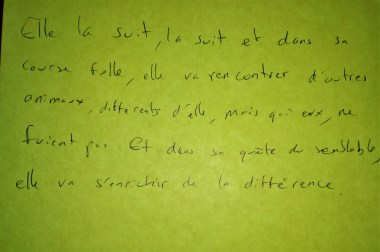 Elle la suit, la suit et dans sa
course folle, elle va rencontrer d'autres
animaux, différents d'elle, mais qui eux, ne
fuient pas. Et dans sa quête du semblable,
elle va s'enrichir de la différence.